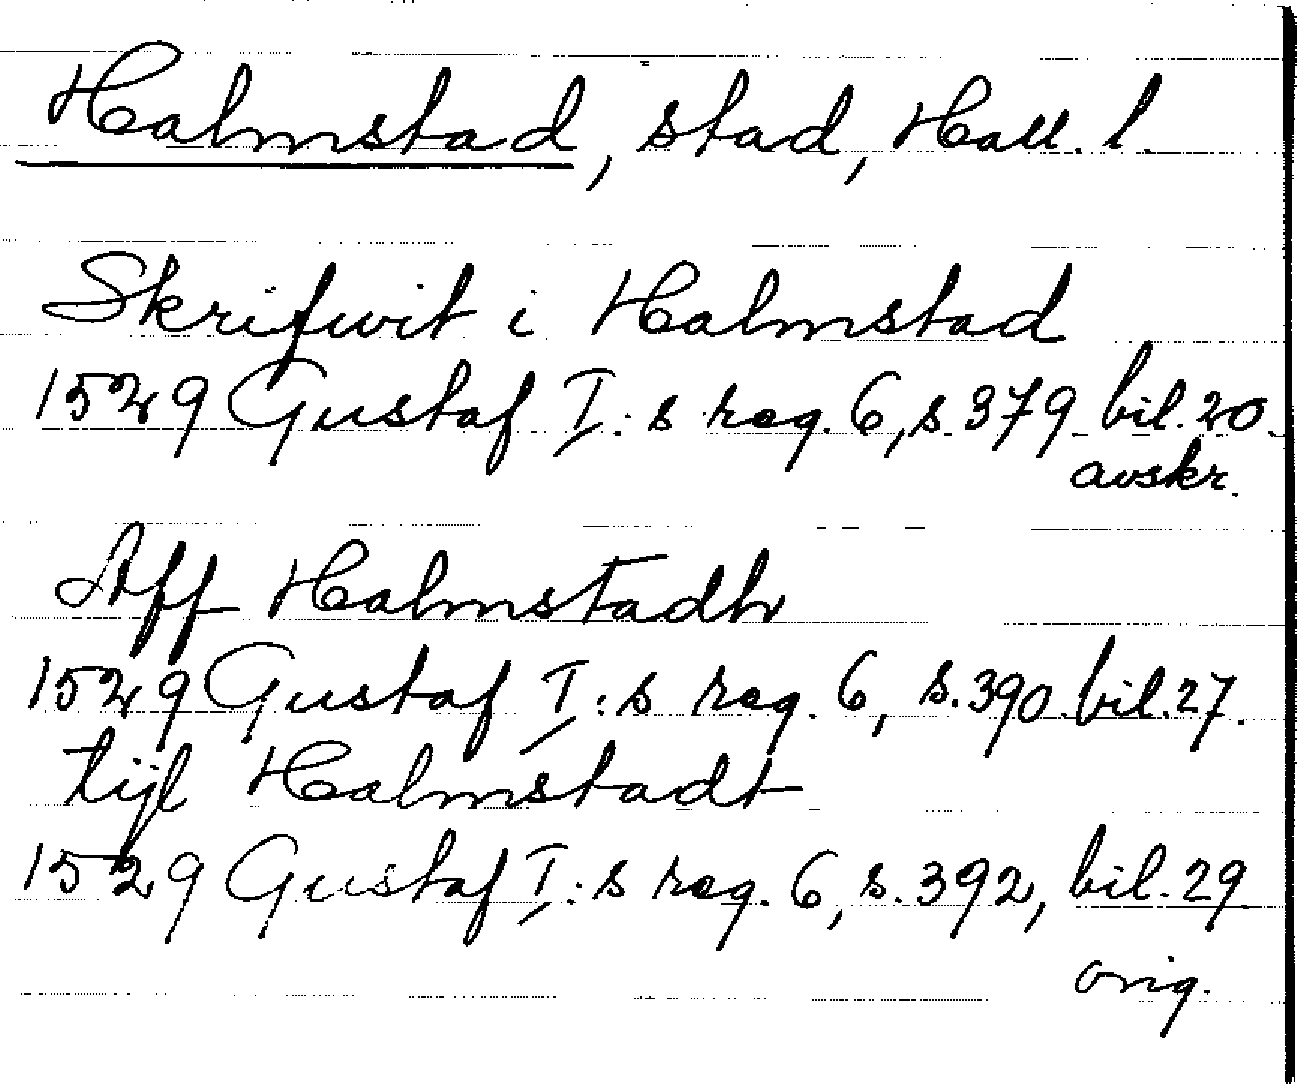 Halmstad, stad, Hall. l.
Skrifwit i Halmstad
1529 Gustaf I:s reg. 6, s. 379 bil. 20.
avskr.
Aff Halmstadh
1529 Gustaf I:s reg. 6, s. 390. bil. 27.
tijl Halmstadt
1529 Gustaf I:s reg. 6, s. 392, bil. 29
orig.